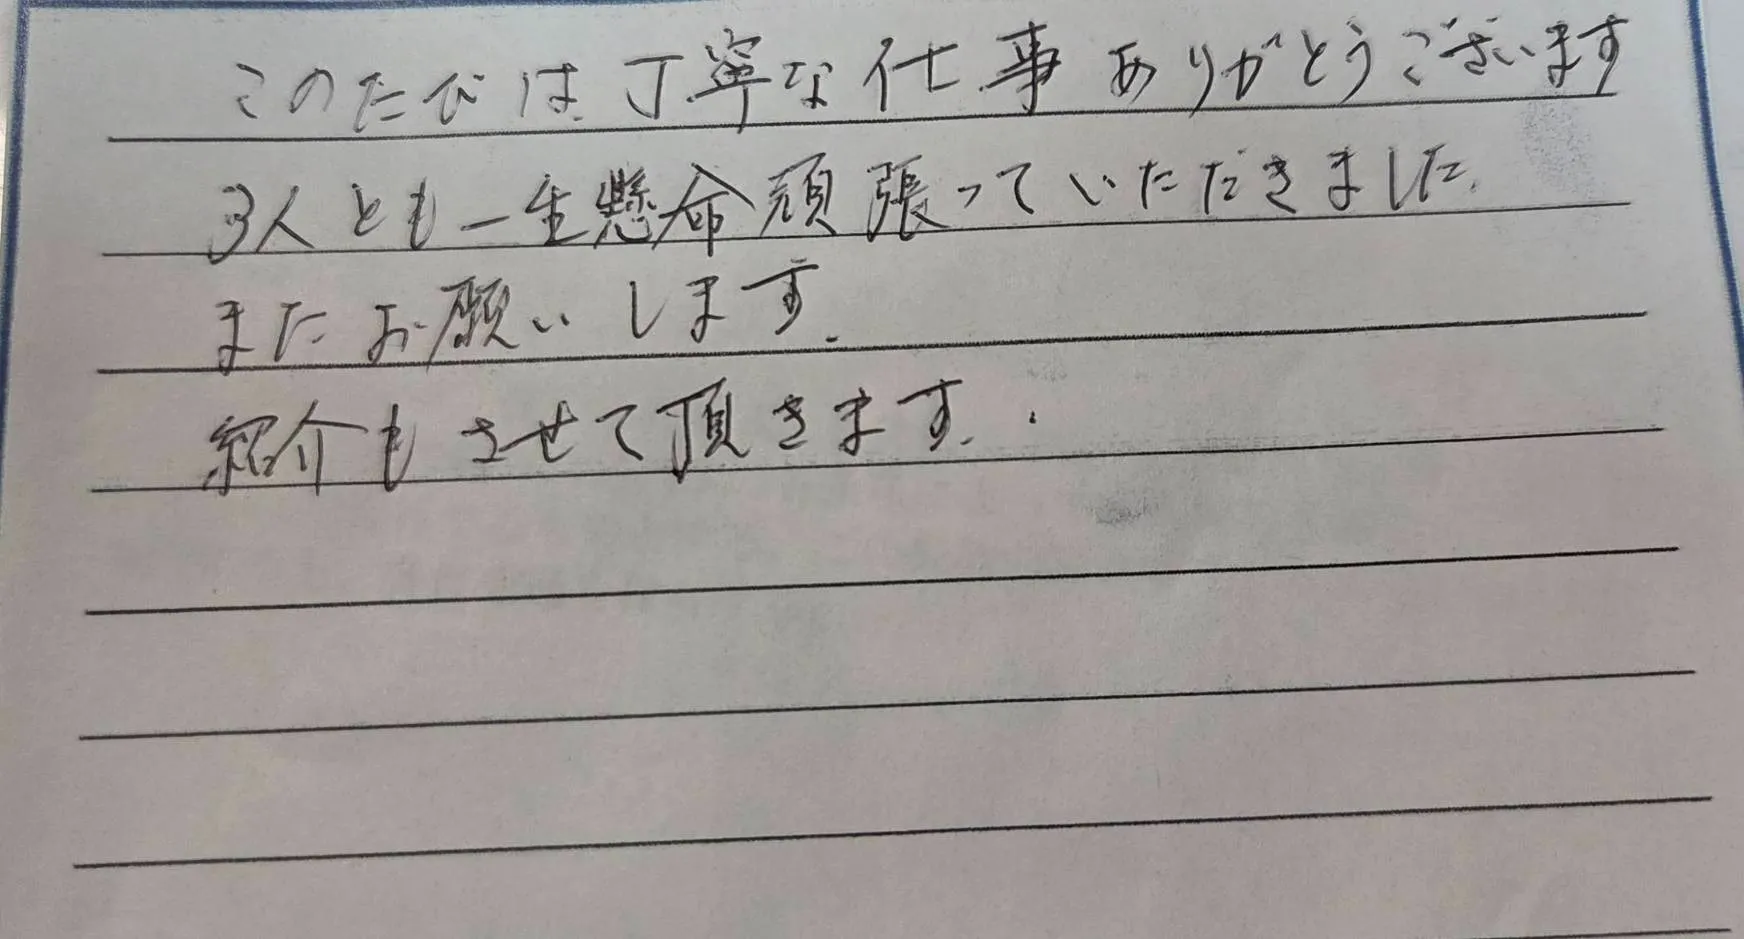 このたびは丁寧な仕事ありがとうございます
3人とも一生懸命頑張っていただきました.
またお願いします.
紹介もさせて頂きます..